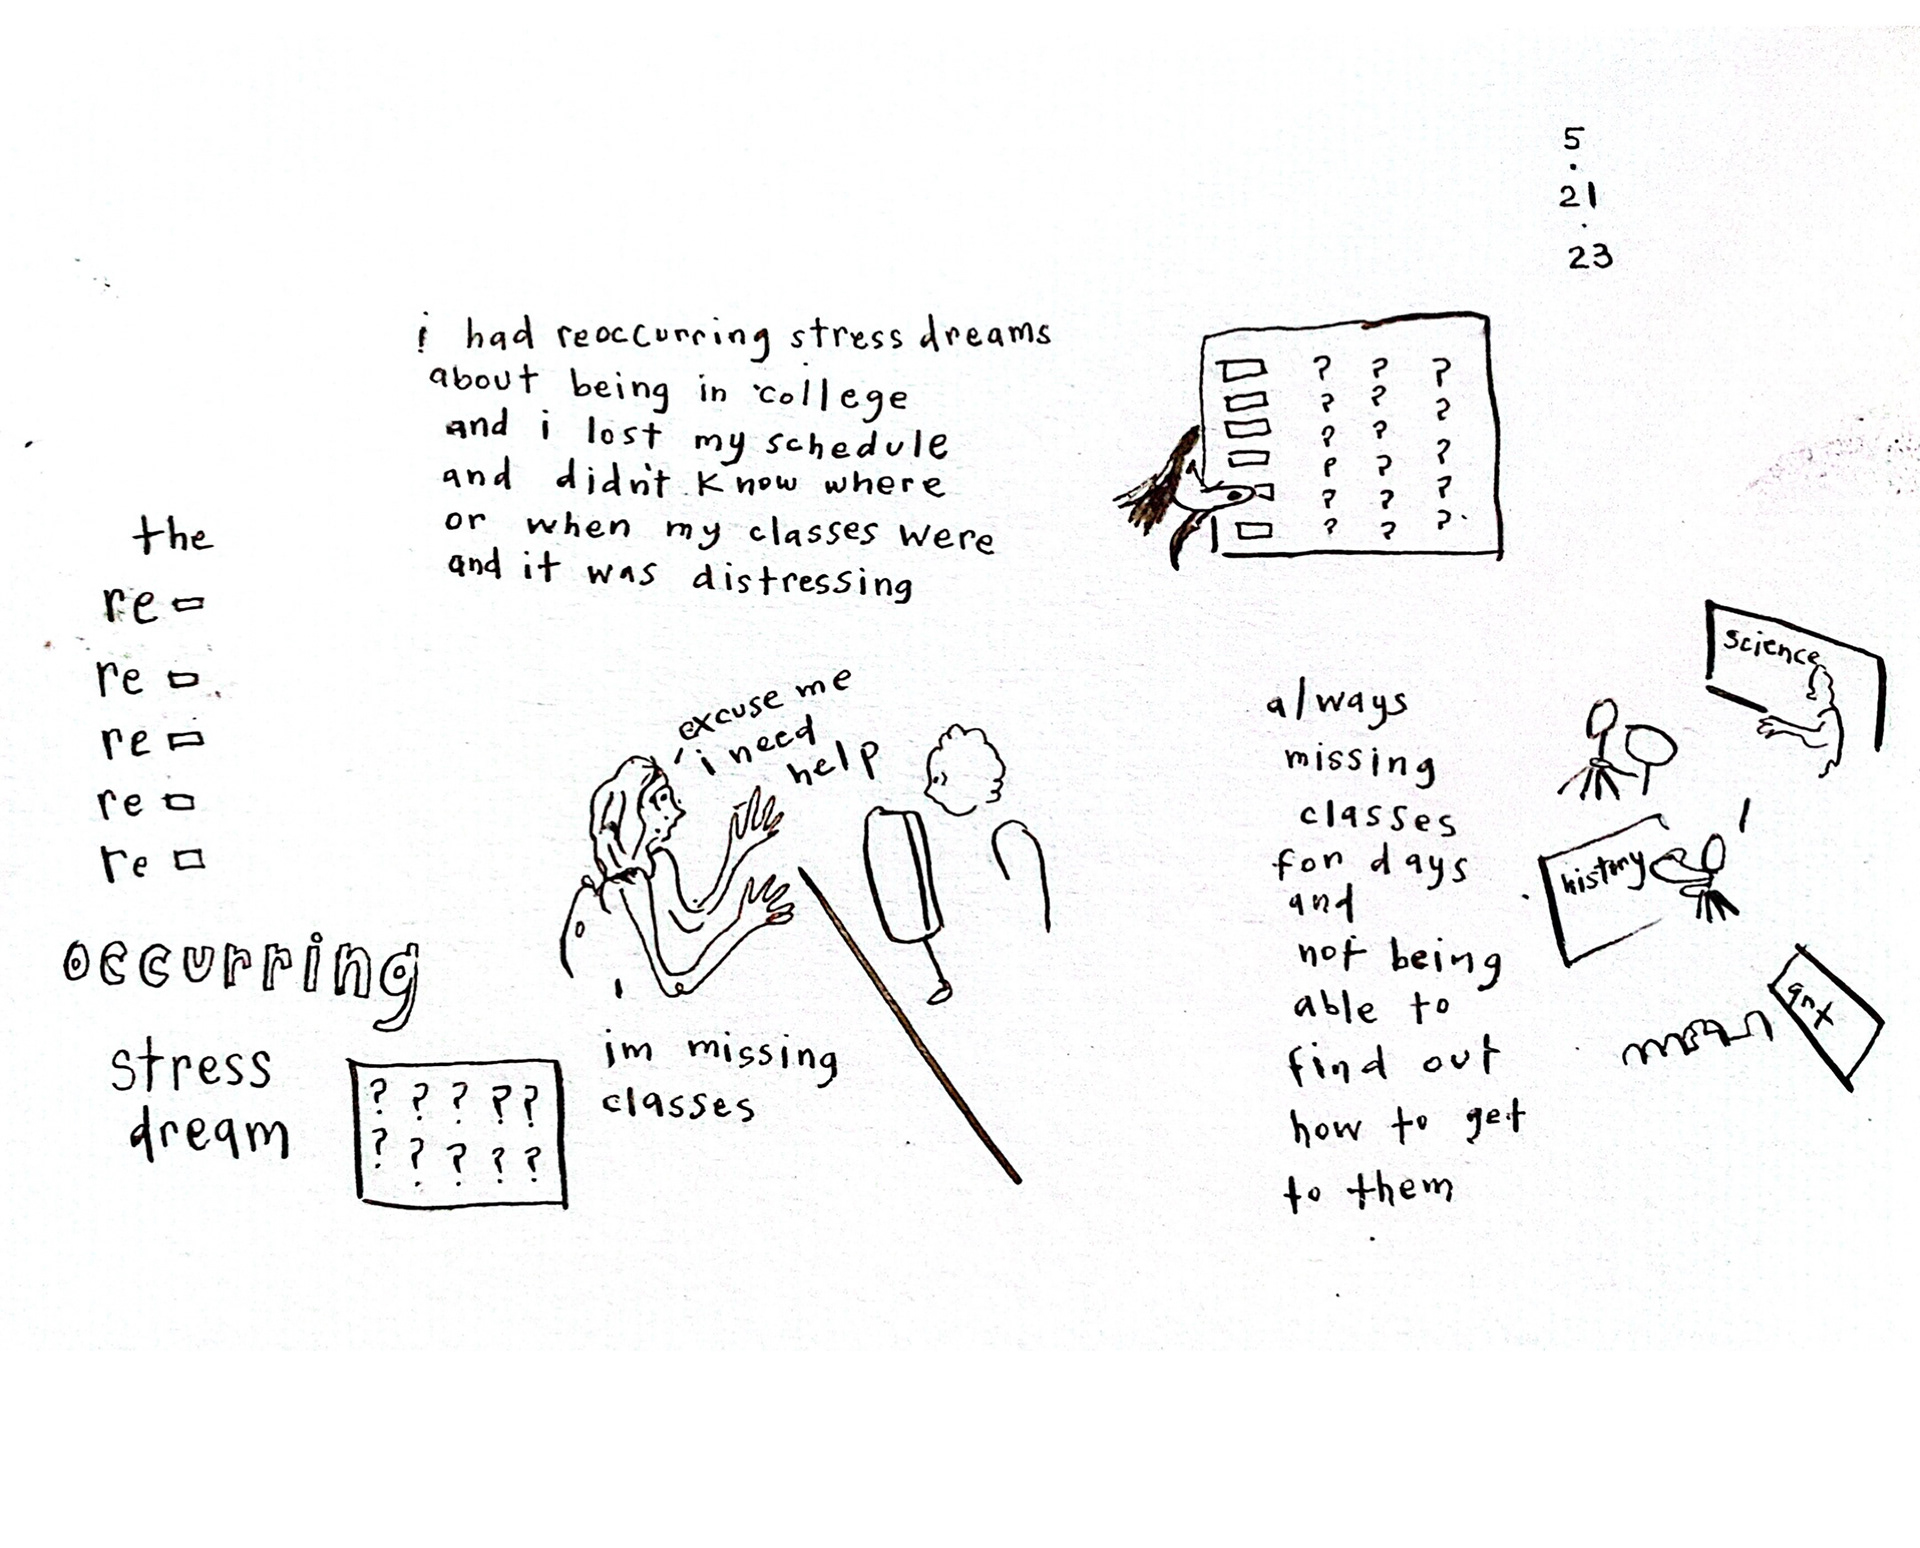 5
.
21
.
23
i had reoccurring stress dreams
about being in college
and i lost my schedule
and didn't know where
or when my classes were
and it was distressing
? ? ?
? ? ?
? ? ?
? ? ?
? ? ?
? ? ?
the
re
re
re
re
re
occurring
stress
dream
? ? ? ? ?
? ? ? ? ?
excuse me
i need
help
im missing
classes
always
missing
classes
for days
and
not being
able to
find out
how to get
to them
science
history
art